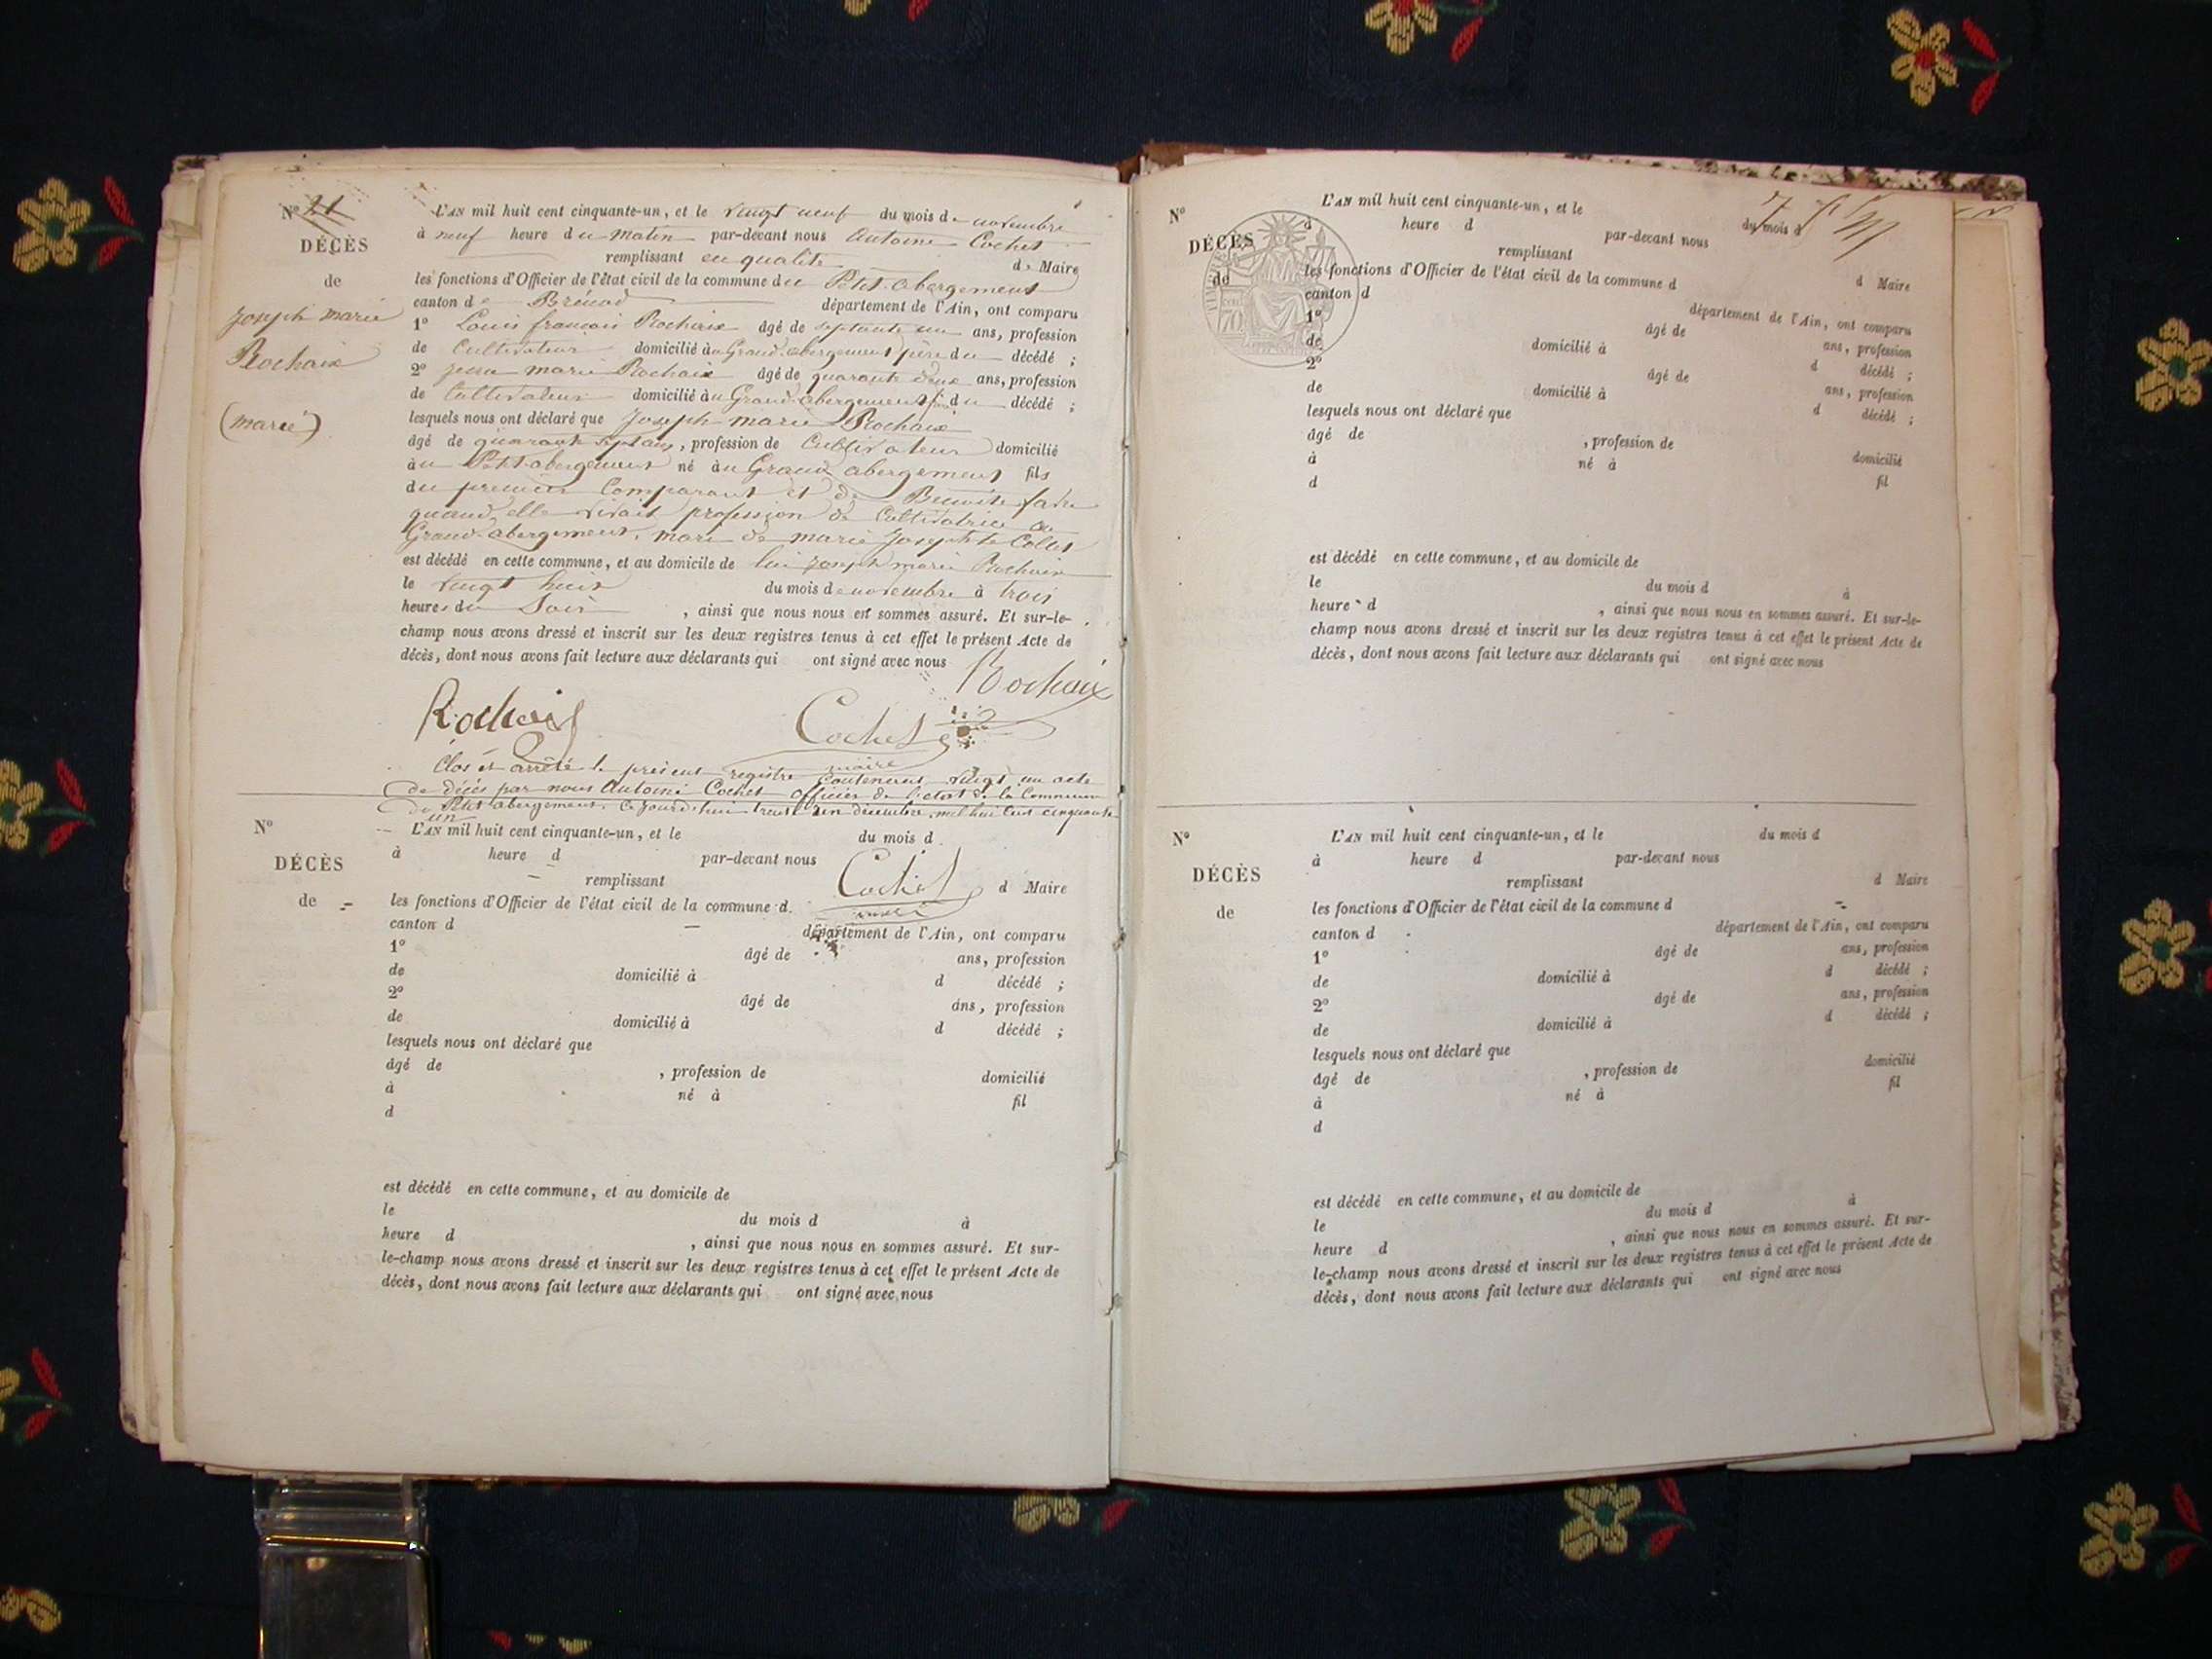 Nº 21
DÉCÈS
de
Joseph marie
Rochaix
(marié)
L'AN mil huit cent cinquante-un, et le vingt neuf du mois de novembre
à neuf heure du matin par-devant nous Antoine Cochet
remplissant en qualité de Maire
les fonctions d'Officier de l'état civil de la commune du Petit-abergement
canton de Brénod département de l'Ain, ont comparu
1º Louis françois Rochaix âgé de septante un ans, profession
de Cultivateur domicilié au Grand-abergement père du décédé ;
2º jean marie Rochaix âgé de quarante deux ans, profession
de Cultivateur domicilié au Grand abergement du décédé ;
lesquels nous ont déclaré que Joseph marie Rochaix
âgé de quarante sept ans, profession de Cultivateur domicilié
au Petit-abergement né au Grand abergement fils
du premier Comparant et de Benoite
quand elle vivait profession de Cultivatrice au
Grand-abergement, mari de marie Josephte
est décédé en cette commune, et au domicile de lui Joseph marie Rochaix
le vingt huit du mois de novembre à trois
heures du Soir , ainsi que nous nous en sommes assuré. Et sur-le-
champ nous avons dressé et inscrit sur les deux registres tenus à cet effet le présent Acte de
décès, dont nous avons fait lecture aux déclarants qui ont signé avec nous
Rochaix
Rochaix
Cochet
maire
Clos et arrêté le présent registre Contenant vingt un acte
de décès par nous Antoine Cochet officier de l'état de la Commune
du Petit abergement. Ce jourd'hui trente un décembre mil huit cent cinquante
un
Nº
DÉCÈS
de
L'AN mil huit cent cinquante-un, et le du mois d
à heure d par-devant nous
Cochet
maire
remplissant d Maire
les fonctions d'Officier de l'état civil de la commune d
canton d département de l'Ain, ont comparu
1º âgé de ans, profession
de domicilié à d décédé ;
2º âgé de ans, profession
de domicilié à d décédé ;
lesquels nous ont déclaré que
âgé de , profession de domicilié
à né à fil
d
est décédé en cette commune, et au domicile de
le du mois d à
heure d , ainsi que nous nous en sommes assuré. Et sur-
le-champ nous avons dressé et inscrit sur les deux registres tenus à cet effet le présent Acte de
décès, dont nous avons fait lecture aux déclarants qui ont signé avec nous
Nº
DÉCÈS
de
L'AN mil huit cent cinquante-un, et le du mois d
à heure d par-devant nous
remplissant d Maire
les fonctions d'Officier de l'état civil de la commune d
canton d département de l'Ain, ont comparu
1º âgé de ans, profession
de domicilié à d décédé ;
2º âgé de ans, profession
de domicilié à d décédé ;
lesquels nous ont déclaré que
âgé de , profession de domicilié
à né à fil
d
est décédé en cette commune, et au domicile de
le du mois d à
heure d , ainsi que nous nous en sommes assuré. Et sur-le-
champ nous avons dressé et inscrit sur les deux registres tenus à cet effet le présent Acte de
décès, dont nous avons fait lecture aux déclarants qui ont signé avec nous
Nº
DÉCÈS
de
L'AN mil huit cent cinquante-un, et le du mois d
à heure d par-devant nous
remplissant d Maire
les fonctions d'Officier de l'état civil de la commune d
canton d département de l'Ain, ont comparu
1º âgé de ans, profession
de domicilié à d décédé ;
2º âgé de ans, profession
de domicilié à d décédé ;
lesquels nous ont déclaré que
âgé de , profession de domicilié
à né à fil
d
est décédé en cette commune, et au domicile de
le du mois d à
heure d , ainsi que nous nous en sommes assuré. Et sur-
le-champ nous avons dressé et inscrit sur les deux registres tenus à cet effet le présent Acte de
décès, dont nous avons fait lecture aux déclarants qui ont signé avec nous